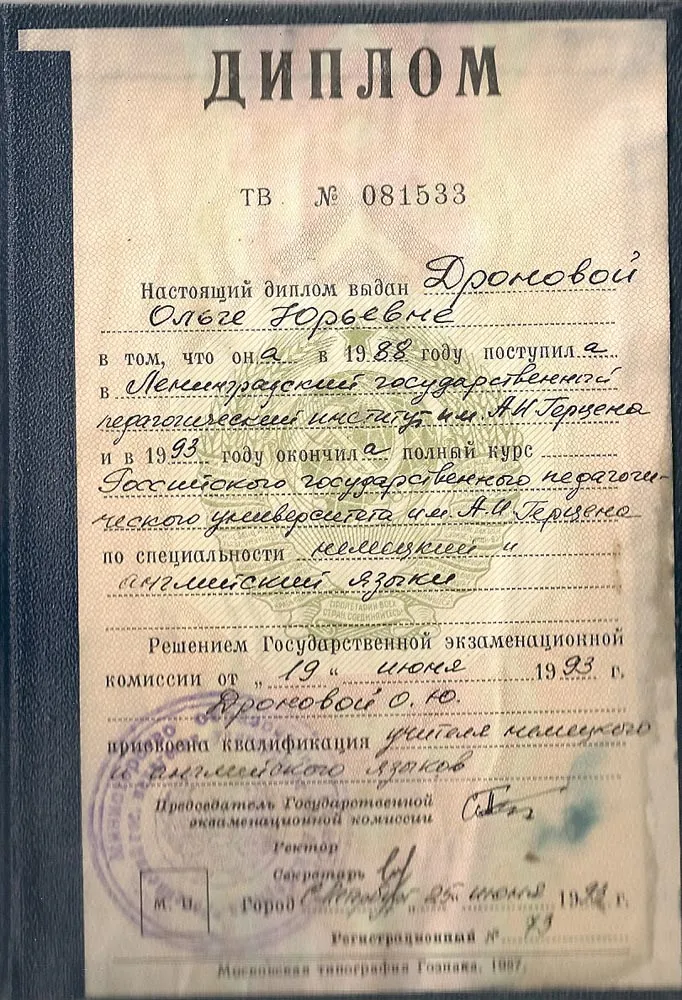 ДИПЛОМ
ТВ № 081533
Настоящий диплом выдан Дроновой
Ольге Юрьевне
в том, что она в 1988 году поступила
в Ленинградский государственный
педагогический институт им. А.И Герцена
и в 1993 году окончила полный курс
Российского государственного педагоги-
ческого университета им. А.И. Герцена
по специальности немецкий и
английский языки
Решением Государственной экзаменационной
комиссии от „ 19 " июня 1993 г.
Дроновой О. Ю.
присвоена квалификация учителя немецкого
и английского языков
Председатель Государственной
экзаменационной комиссии
Ректор
Секретарь
М. П.
Город С-Петербург 25 июня 199 г.
Регистрационный № 73
Московская типография Гознака. 1987.